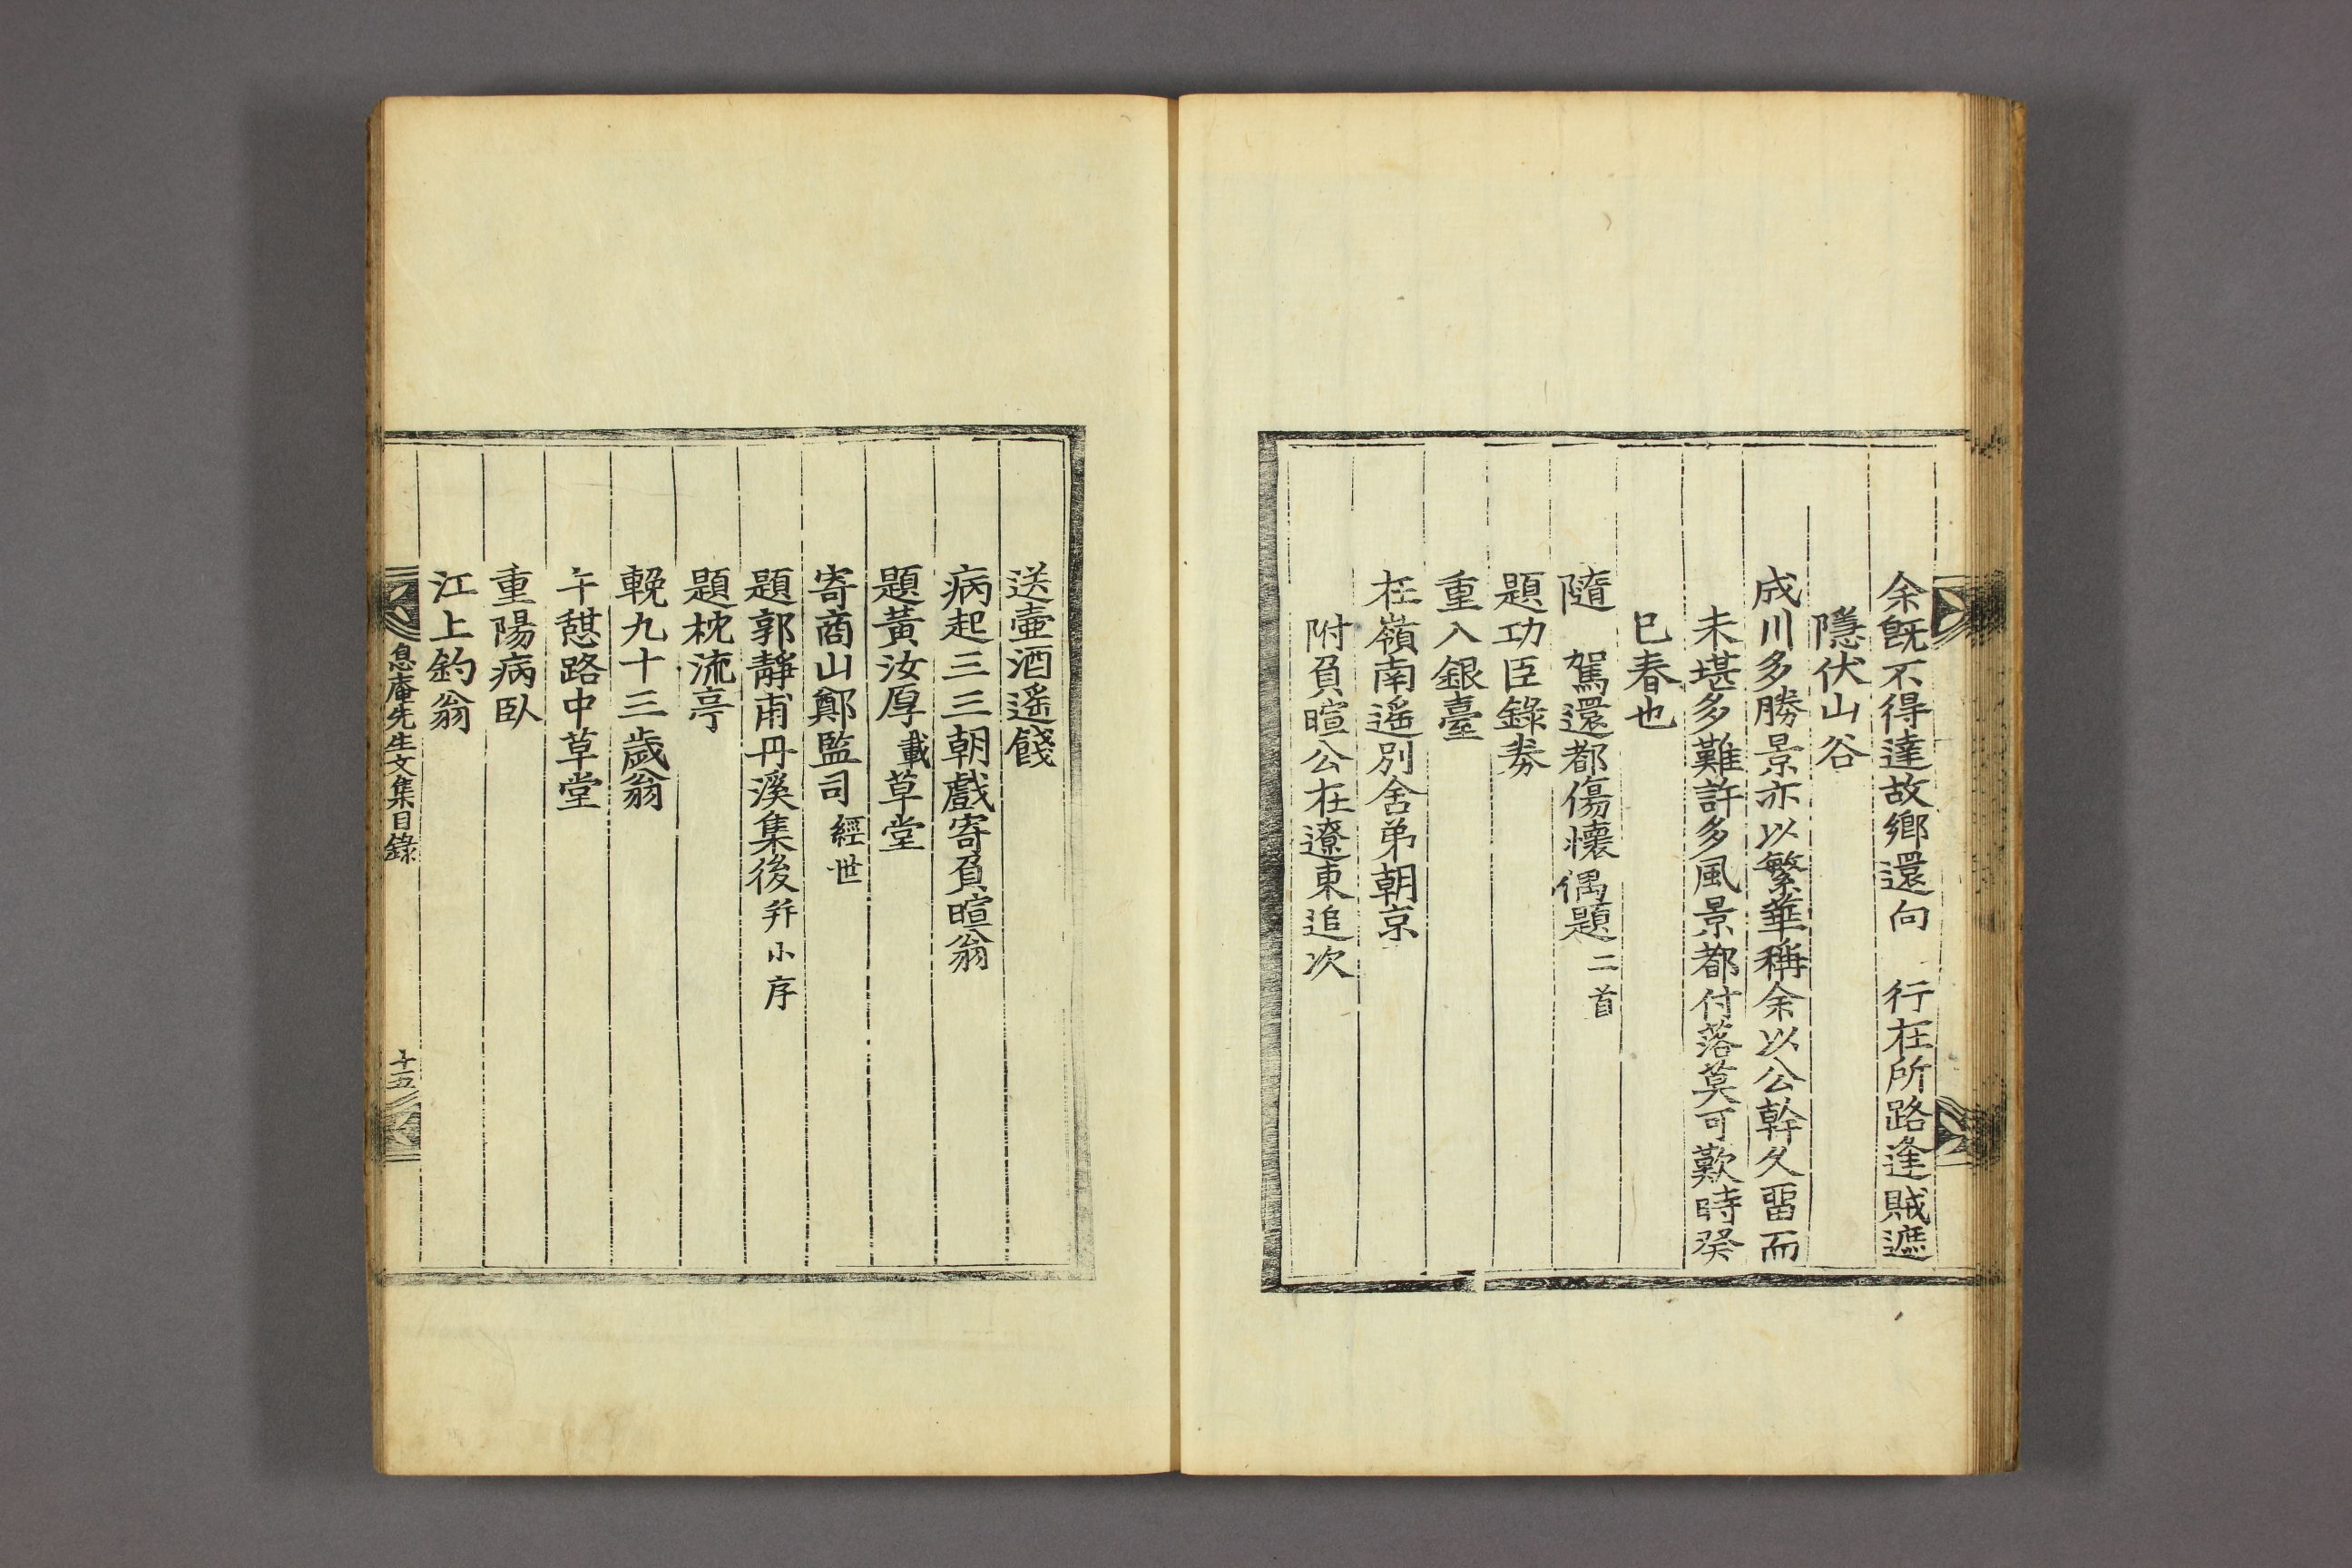 余旣不得達故鄉還向 行在所路逢賊遮
隱伏山谷
成川多勝景亦以繁華稱余以公幹久畱而
未堪多難許多風景都付落莫可歎時癸
巳春也
隨 駕還都傷懷偶題二首
題功臣錄券
重入銀臺
在嶺南遙別舍弟朝京
附負暄公在遼東追次
送壺酒遙餞
病起三三朝戲寄負暄翁
題黃汝厚載草堂
寄商山鄭監司經世
題郭靜甫丹溪集後幷小序
題枕流亭
輓九十三歲翁
午憇路中草堂
重陽病臥
江上釣翁
息庵先生文集目錄 十五